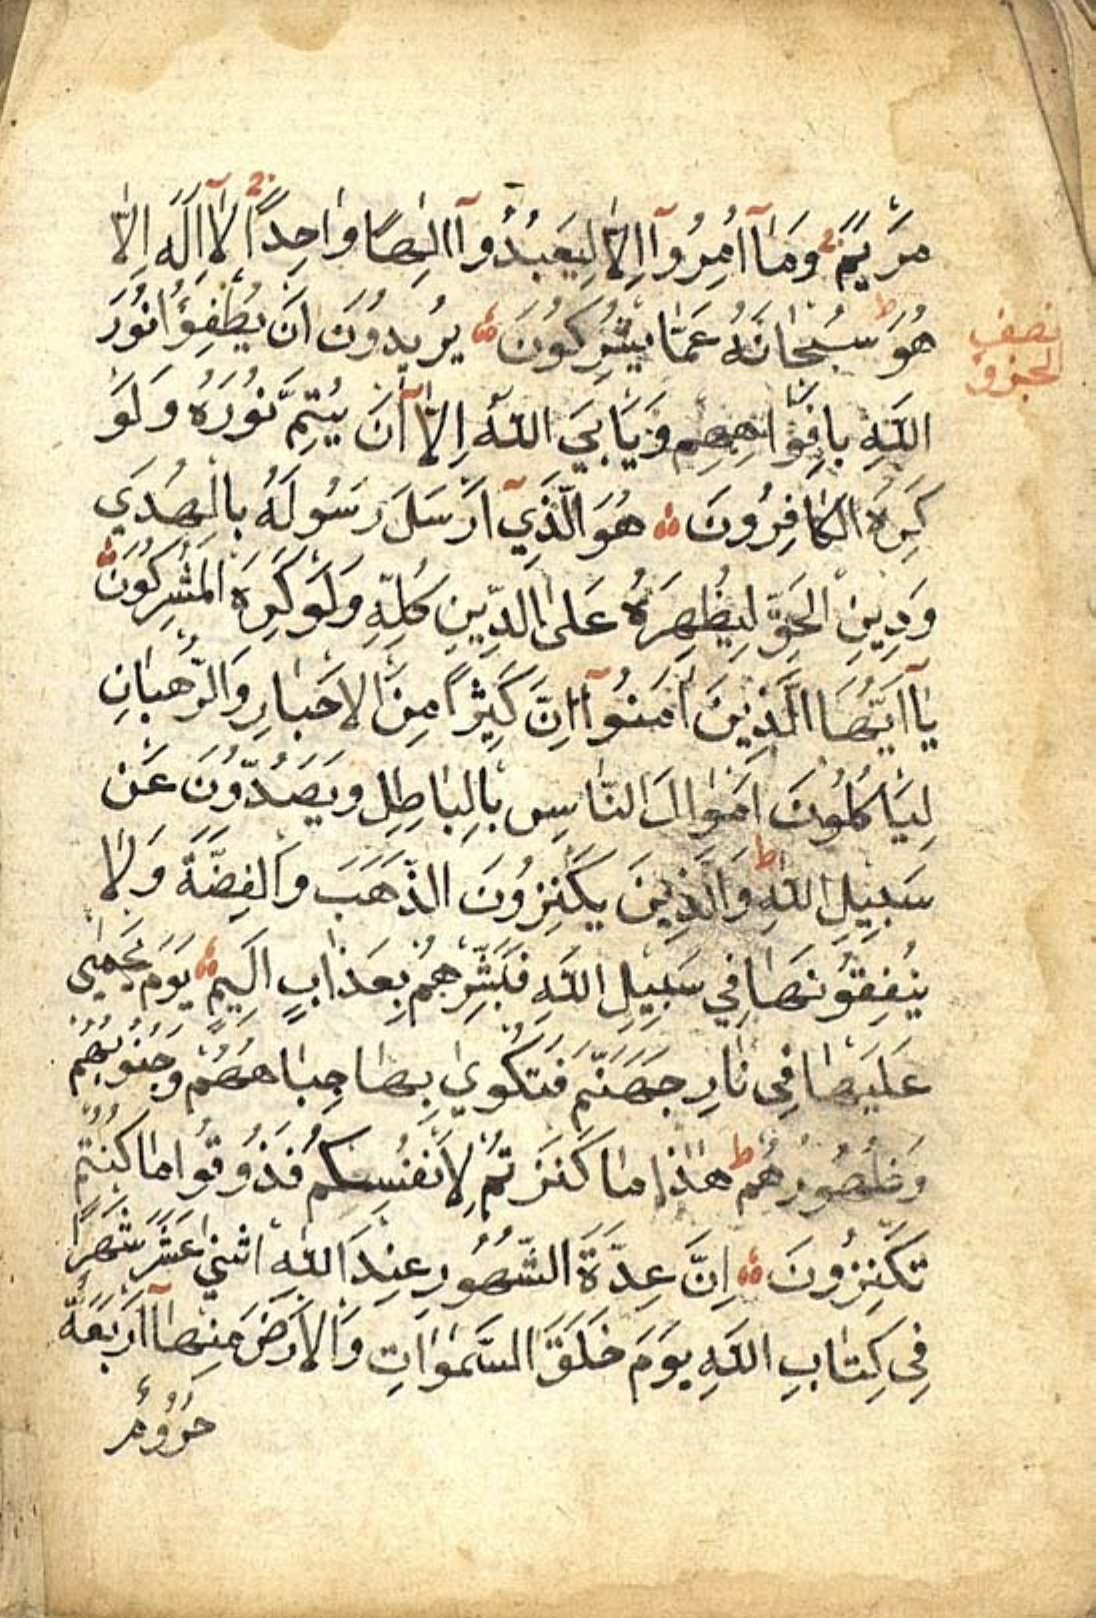 مَرْيَمَ وَمَآ اُمِرُوٓا اِلَّا لِيَعْبُدُوٓا اِلٰهًا وَاحِدًا لَآ اِلٰهَ اِلَّا
هُوَ سُبْحَانَهُ عَمَّا يُشْرِكُونَ يُرِيدُونَ اَنْ يُطْفِؤُا نُورَ
نصف
الجزو
اللّٰهِ بِاَفْوَاهِهِمْ وَيَاْبَى اللّٰهُ اِلَّآ اَنْ يُتِمَّ نُورَهُ وَلَوْ
كَرِهَ الْكَافِرُونَ هُوَ الَّذِيٓ اَرْسَلَ رَسُولَهُ بِالْهُدَي
وَدِينِ الْحَقِّ لِيُظْهِرَهُ عَلَى الدِّينِ كُلِّهِ وَلَوْ كَرِهَ الْمُشْرِكُونَ
يَآ اَيُّهَا الَّذِينَ اٰمَنُوٓا اِنَّ كَثِيرًا مِنَ الْاَحْبَارِ وَالرُّهْبَانِ
لَيَاْكُلُونَ اَمْوَالَ النَّاسِ بِالْبَاطِلِ وَيَصُدُّونَ عَنْ
سَبِيلِ اللّٰهِ وَالَّذِينَ يَكْنِزُونَ الذَّهَبَ وَالْفِضَّةَ وَلَا
يُنْفِقُونَهَا فِي سَبِيلِ اللّٰهِ فَبَشِّرْهُمْ بِعَذَابٍ اَلِيمٍ يَوْمَ يُحْمٰى
عَلَيْهَا فِى نَارِ جَهَنَّمَ فَتُكْوٰي بِهَا جِبَاهُهُمْ وَجُنُوبُهُمْ
وَظُهُورُهُمْ هٰذَا مَا كَنَزْتُمْ لِاَنْفُسِكُمْ فَذُوقُوا مَا كُنْتُمْ
تَكْنِزُونَ اِنَّ عِدَّةَ الشُّهُورِ عِنْدَ اللّٰهِ اثْنَيْ عَشَرَ شَهْرًا
فِى كِتَابِ اللّٰهِ يَوْمَ خَلَقَ السَّمٰوَاتِ وَالْاَرْضَ مِنْهَآ اَرْبَعَةٌ